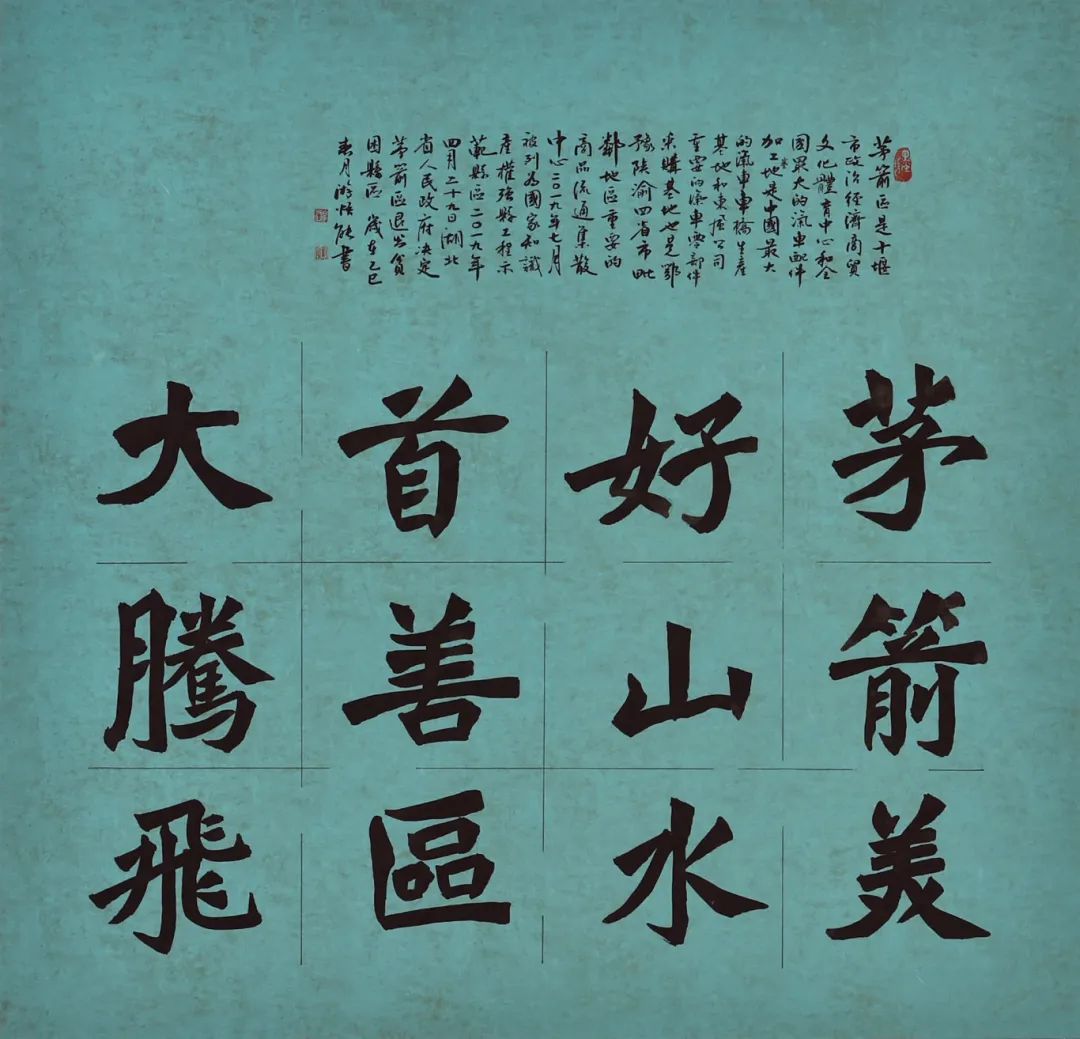 茅箭區是十堰
市政治經濟商貿
文化體育中心和全
國最大的汽車配件
加工基地是中國最大
的汽車車橋生產
基地和東風公司
重要的汽車零部件
采購基地也是鄂
豫陝渝四省市毗
鄰地區重要的
商品流通集散
中心二〇一九年七月
被列為國家知識
產權強縣工程示
範縣區二〇一九年
四月二十九日湖北
省人民政府決定
茅箭區退出貧
困縣區 歲在乙巳
春月游能書
茅箭美
好山水
首善區
大騰飛